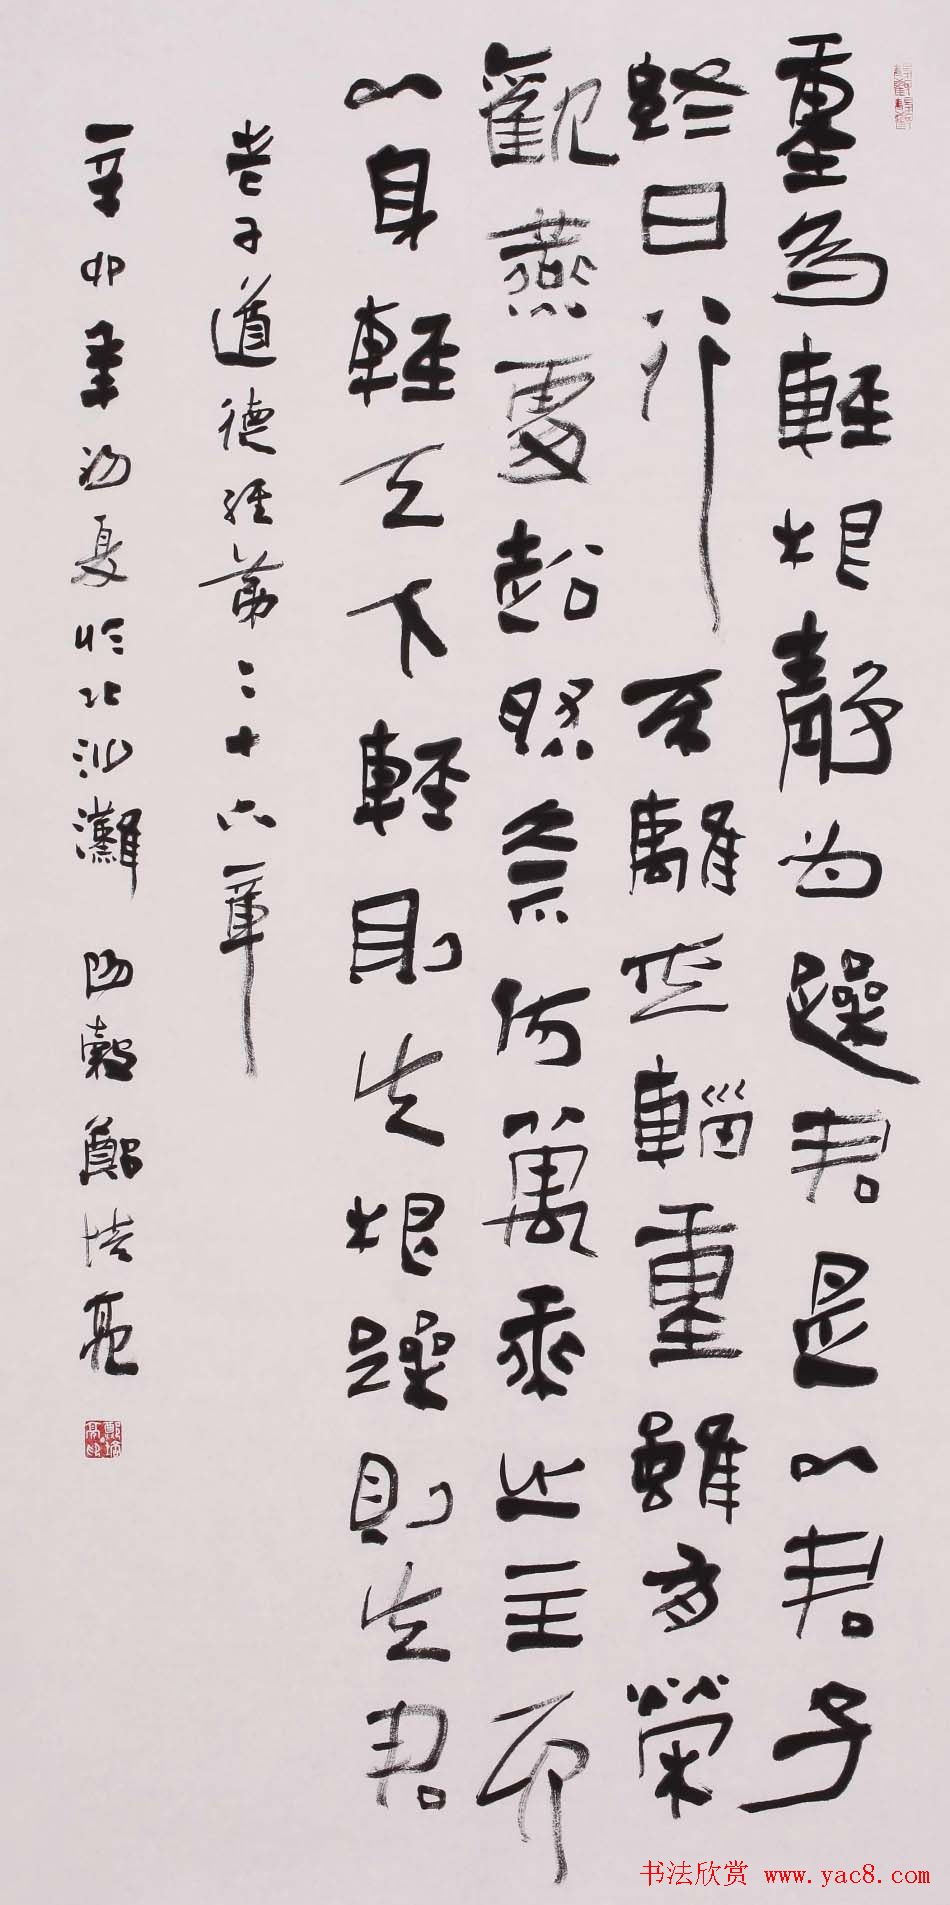 重為輕根靜为躁君是以君子
終日行不離其輜重雖有榮
觀燕處超然奈何萬乘之主而
以身輕天下輕則失根躁則失君
老子道德經第二十六章
辛卯年初夏於北沙灘 陽穀鄭培亮
书法欣赏 www.yac8.com